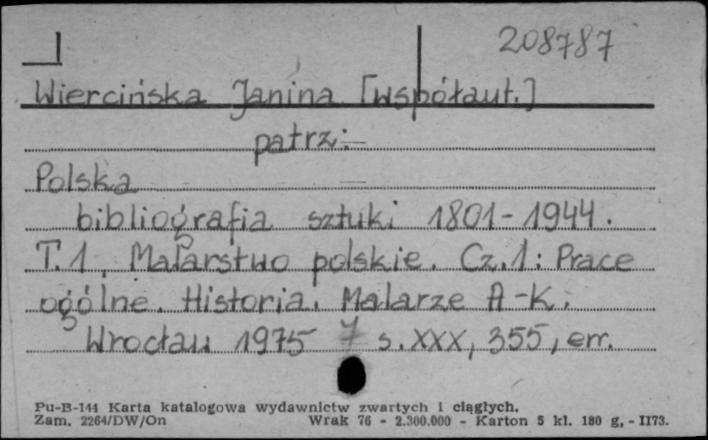 208787
Wiercińska Janina [współaut.]
patrz:
Polska
bibliografia sztuki 1801-1944.
T.1. Malarstwo polskie. Cz.1: Prace
ogólne. Historia. Malarze A-K.
Wrocław 1975 s. XXX, 355, err.
Pu-B-144 Karta katalogowa wydawnictw zwartych i ciągłych.
Zam. 2264/DW/On Wrak 76 - 2.300.000 - Karton 5 kl. 180 g, - II73.